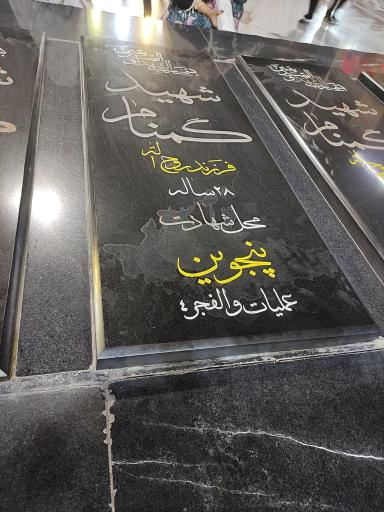 شهید
گمنام
فرزند روح الله
۲۸ ساله
محل شهادت
پنجوین
عملیات والفجر ۴
شهید
گمنام